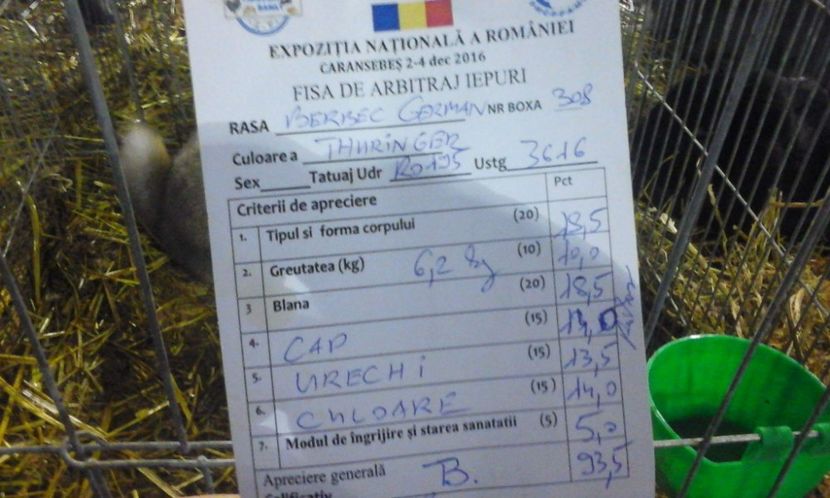 EXPOZIȚIA NAȚIONALĂ A ROMÂNIEI
CARANSEBEȘ 2-4 dec 2016
FISA DE ARBITRAJ IEPURI
RASA BERBEC GERMAN NR BOXA 308
Culoare a THURINGER
Sex Tatuaj Udr RO195 Ustg 3616
Criterii de apreciere Pct
1. Tipul si forma corpului (20) 18,5
2. Greutatea (kg) 6,2 kg (10) 10,0
3 Blana (20) 18,5
4. CAP (15) 14,0
5. URECHI (15) 13,5
6. CULOARE (15) 14,0
7. Modul de îngrijire și starea sanatatii (5) 5,0
Apreciere generală B. 93,5